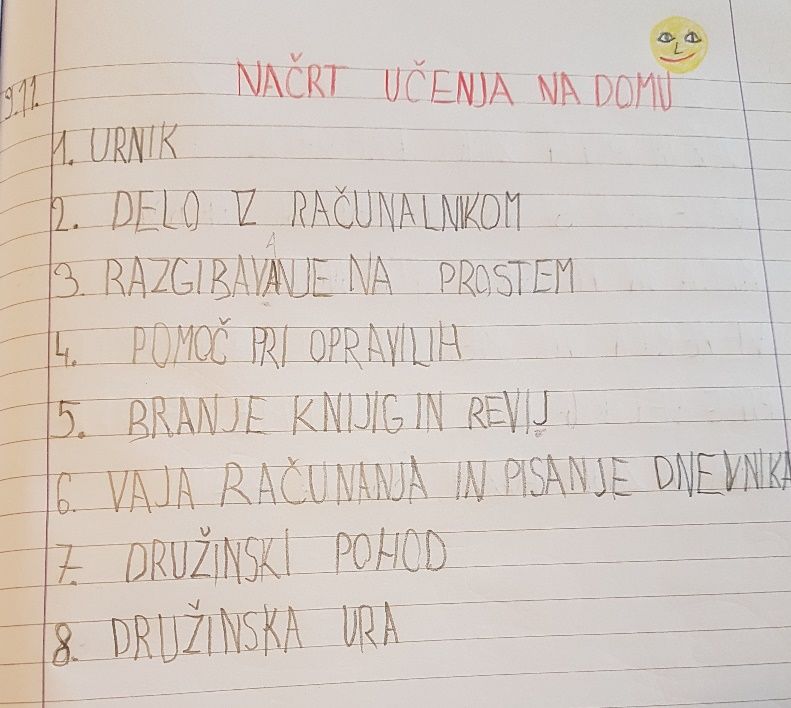 NAČRT UČENJA NA DOMU
9.11.
1. URNIK
2. DELO Z RAČUNALNIKOM
3. RAZGIBAVANJE NA PROSTEM
4. POMOČ PRI OPRAVILIH
5. BRANJE KNJIG IN REVIJ
6. VAJA RAČUNANJA IN PISANJE DNEVNIKA
7. DRUŽINSKI POHOD
8. DRUŽINSKA URA